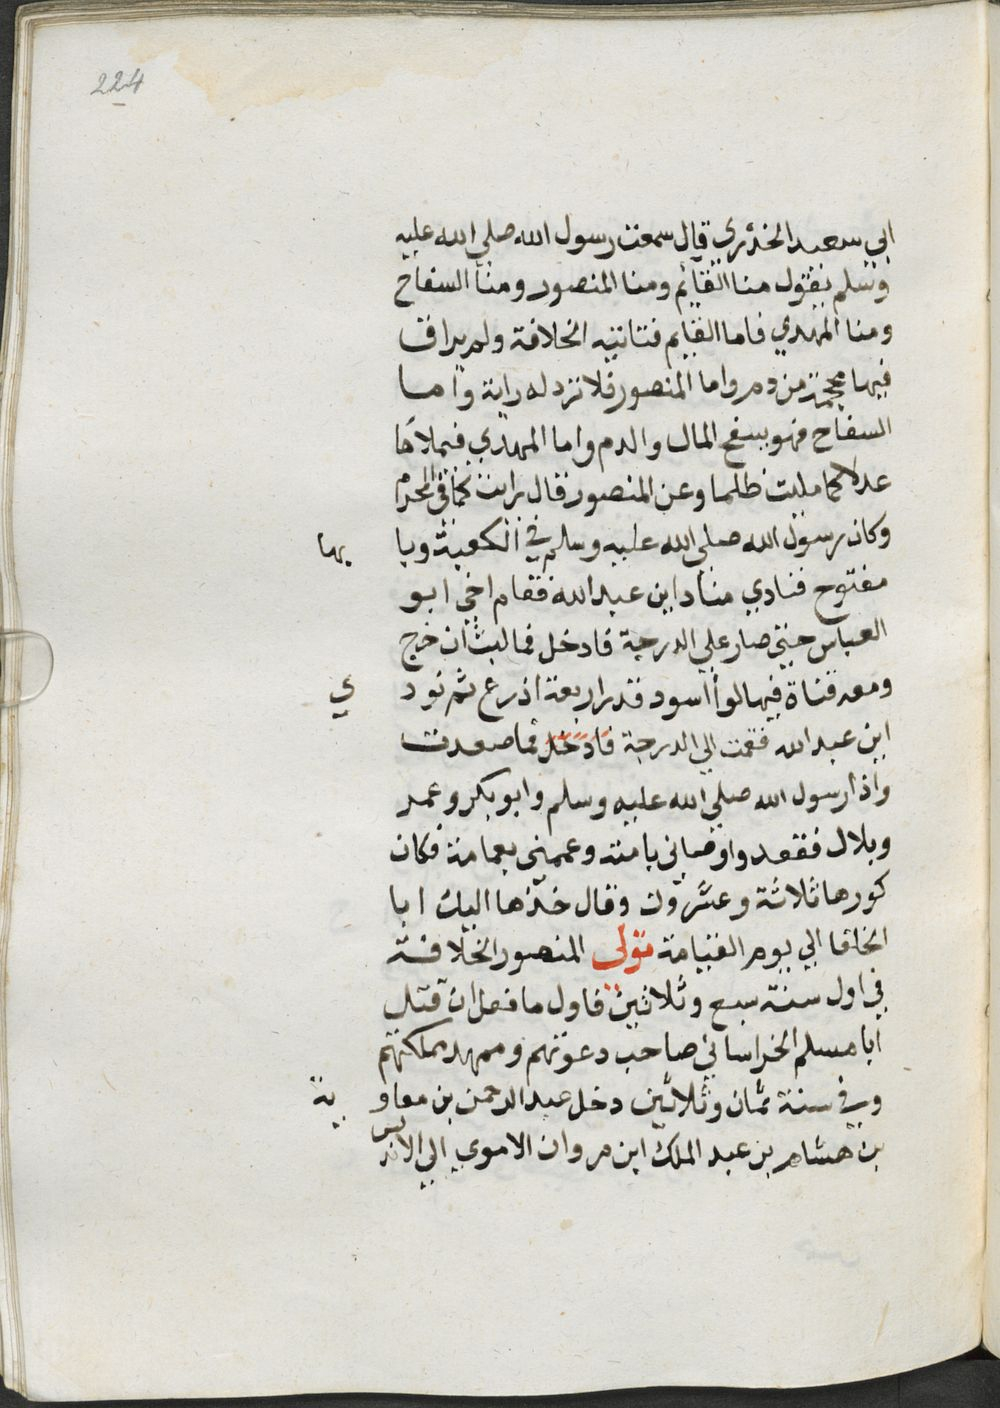 224
ابي سعيد الخدري قال سمعت رسول الله صلي الله عليه
وسلم يقول منا القايم ومنا المنصور ومنا السفاح
ومنا المهدي فاما القايم فتاتيه الخلافة ولم يراق
فيها محجمة من دم واما المنصور فلا تزد له راية واما
السفاح فهو يسفح المال والدم واما المهدي فيملاها
عدلا كما مليت ظلما وعن المنصور قال رايت كما في الحرم
وكان رسول الله صلي الله عليه وسلم في الكعبة وبا بها
مفتوح فنادي مناد اين عبد الله فقام اخي ابو
العباس حتي صار علي الدرجة فادخل فما لبث ان خرج
ومعه قناة فيها لوا اسود قدر اربعة اذرع ثم نود ي
اين عبد الله فقمت الي الدرجة فادخل فما صعدت
واذا رسول الله صلي الله عليه وسلم وابو بكر وعمر
وبلال فقعد واوصاني بامته وعممني بعمامة فكان
كورها ثلاثة وعشرون وقال خذها اليك ابا
الخلفا الي يوم القيامة تولى المنصور الخلافة
في اول سنة سبع وثلاثين فاول ما فعل ان قتل
ابا مسلم الخراساني صاحب دعوتهم وممهد مملكتهم
وفي سنة ثمان وثلاثين دخل عبد الرحمن بن معاو ية
بن هشام بن عبد الملك ابن مروان الاموي الي الاندلس